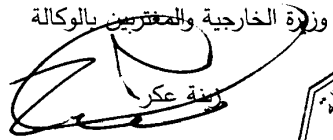 وزيرة الخارجية والمغتربين بالوكالة
زينة عكر